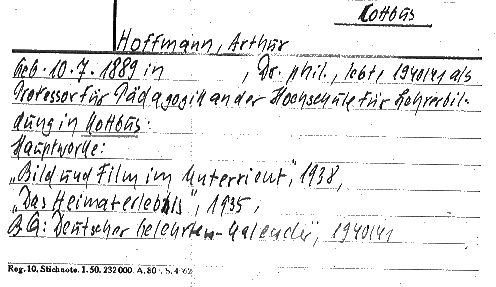 Kottbus
Hoffmann, Arthur
Geb. 10.7.1889 in , Dr. phil., lebt, 1940/41 als
Professor für Pädagogik an der Hochschule für Lehrerbil-
dung in Kottbus.
Hauptwerke:
„Bild und Film im Unterricht", 1938,
„Das Heimaterlebnis", 1935,
BQ: Deutscher Gelehrten-Kalender, 1940/41
Reg. 10, Stichnote. 1. 50. 232000. A. 80